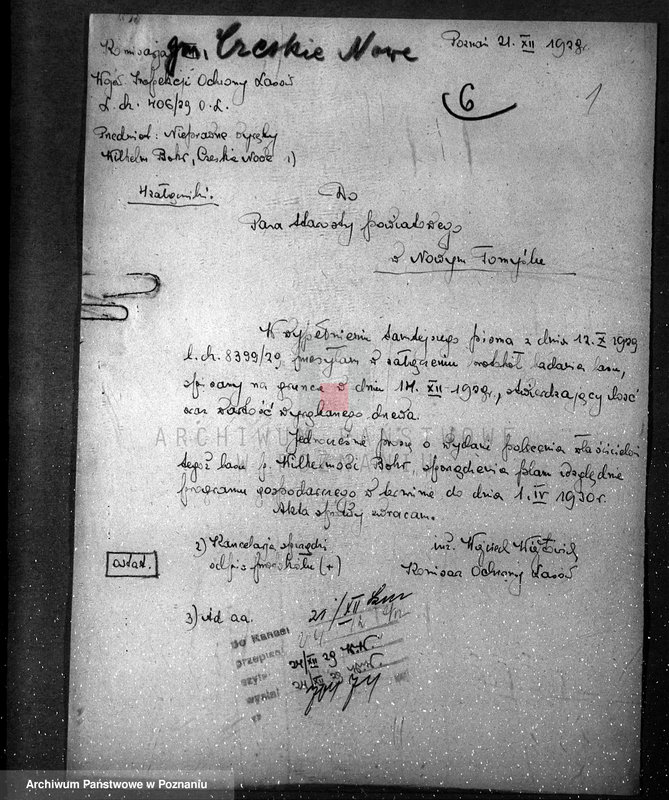 gm. Czeskie Nowe
Poznań 21. XII 1929 r.
Komisarja
Woj. Inspekcji Ochrony Lasów
L. dz. 406/29 O.L.
6
1
Przedmiot: Nieprawne wyręby
Wilhelm Bohr, Czeskie Nowe 1)
4 załączniki.
Do
Pana Starosty powiatowego
w Nowym Tomyślu
W wypełnieniu tamtejszego pisma z dnia 12. X 1929
l. dz. 8399/29 przesyłam w załączeniu protokół badania lasu,
spisany na gruncie w dniu 14. XII 1929 r., stwierdzający ilość
oraz wartość wyrąbanego drzewa.
Jednocześnie proszę o wydanie polecenia właścicielowi
tegoż lasu p. Wilhelmowi Bohr, sporządzenia planu względnie
programu gospodarczego w terminie do dnia 1. IV 1930 r.
Akta sprawy zwracam.
2) Kancelarja sporządzi
odpis protokółu (+)
inż.
Komisarz Ochrony Lasów
3) Ad aa.
21/XII
Do Kancel
przepisał
24/XII 29 K.K.
czyt
24/XII 29 K.K.
wysłał
ARCHIWUM PAŃSTWOWE
W POZNANIU
Archiwum Państwowe w Poznaniu